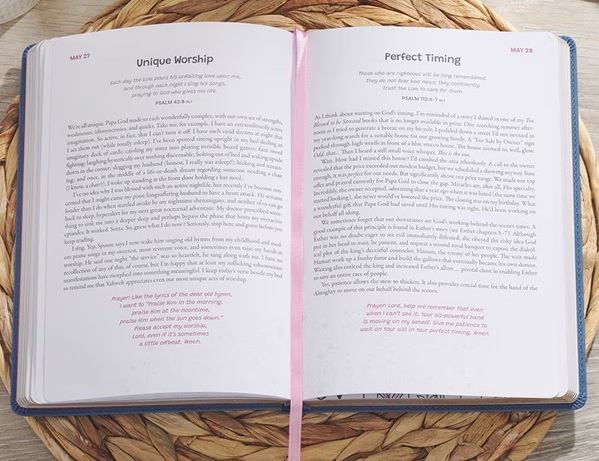 MAY 27
Unique Worship
Each day the LORD pours his unfailing love upon me,
and through each night I sing his songs,
praying to God who gives me life.
PSALM 42:8 NLT
We're all unique. Papa God made us each wonderfully complex, with our own set of strengths,
weaknesses, idiosyncrasies, and quirks. Take me, for example. I have an extraordinarily active
imagination. So active, in fact, that I can't turn it off. I have such vivid dreams at night that
I act them out (while totally asleep). I've been spotted sitting upright in my bed dealing an
imaginary deck of cards; calling my sister into playing invisible board games; fists
fighting; laughing hysterically over nothing discernable; bolting out of bed and waking upside
down in the corner; slugging my husband (honest, I really was asleep!); kicking and scream-
ing; and once, in the middle of a life-or-death dream regarding someone needing a chair
(I know, a chair?), I woke up standing at the front door holding a bar stool.
I've no idea why I was blessed with such an active nightlife, but recently I've become con-
cerned that I might cause my poor, longsuffering husband to have a heart attack. He screams
louder than I do when startled awake by my nighttime shenanigans, and neither of us can go
back to sleep, hypertalker for my rare great nocturnal adventure. My doctor prescribed some-
thing to sink me into a deeper sleep and perhaps bypass the phase that hosts my overactive
episodes. It worked. Sorta. So, guess what I do now? Seriously, stop here and guess before you
keep reading.
I sing. Yep, Spouse says I now wake him singing old hymns from my childhood and mod-
ern praise songs in my sweetest, most reverent voice, and sometimes even raise my hands in
worship. He said one night "the service" was so heartfelt, he sang along with me. I have no
recollection of any of this, of course, but I'm happy that at least my trafficking subconscious
manifestations have morphed into something meaningful. I keep today's verse beside my bed
to remind me that Yahweh appreciates even our most unique acts of worship.
Prayer: Like the lyrics of the dear old hymn,
I want to "Praise Him in the morning,
praise Him at the noontime,
praise Him when the sun goes down."
Please accept my worship,
Lord, even if it's sometimes
a little offbeat. Amen.
MAY 28
Perfect Timing
Those who are righteous will be long remembered.
They do not fear bad news; they confidently
trust the LORD to care for them.
PSALM 112:6-7 NLT
As I think about waiting on God's timing, I'm reminded of a story I shared in one of my Too
Blessed to be Stressed books that is no longer available in print. One scorching summer after-
noon as I tried to generate a breeze on my bicycle, I pedaled down a street I'd not noticed in
my year-long search for a suitable house for our growing family. A "For Sale by Owner" sign
parked through high weeds in front of a blue stucco house. The house seemed to, well, glow.
Odd, that... Then I heard a still small voice whisper, This is the one.
Wait. How had I missed this house? I'd combed the area relentlessly. A call to the owner
revealed that the price exceeded our modest budget, but we scheduled a showing anyway. Sure
enough, it was perfect for our needs. But significantly above our price range. We made our top
offer and prayed earnestly for Papa God to close the gap. Miracles are, after all, His specialty.
Incredibly, the owner accepted, admitting that a year ago when it was listed (the same time we
started looking), she never would've lowered the price. The closing was on my birthday. What
a wonderful gift that Papa God had saved until His timing was right. He'd been working on
our behalf all along.
We sometimes forget that our downtimes are God's working behind-the-scenes times. A
good example of this principle is found in Esther's story (see Esther chapters 5–7). Although
Esther was no doubt eager to see evil immediately defeated, she obeyed the stinky idea God
put in her head to wait, be patient, and request a second royal banquet to expose the diabol-
ical plot of the king's deceitful counselor, Haman, the enemy of her people. The wait made
Haman work up a frothy fume and build the gallows that eventually became his own demise.
Waiting also enticed the king and increased Esther's allure… pivotal clout in enabling Esther
to save an entire race of people.
Yes, patience allows the stew to thicken. It also provides crucial time for the hand of the
Almighty to move on our behalf behind the scenes.
Prayer: Lord, help me remember that even
when I can't see it, Your all-powerful hand
is moving on my behalf. Give me patience to
wait on Your will in Your perfect timing. Amen.